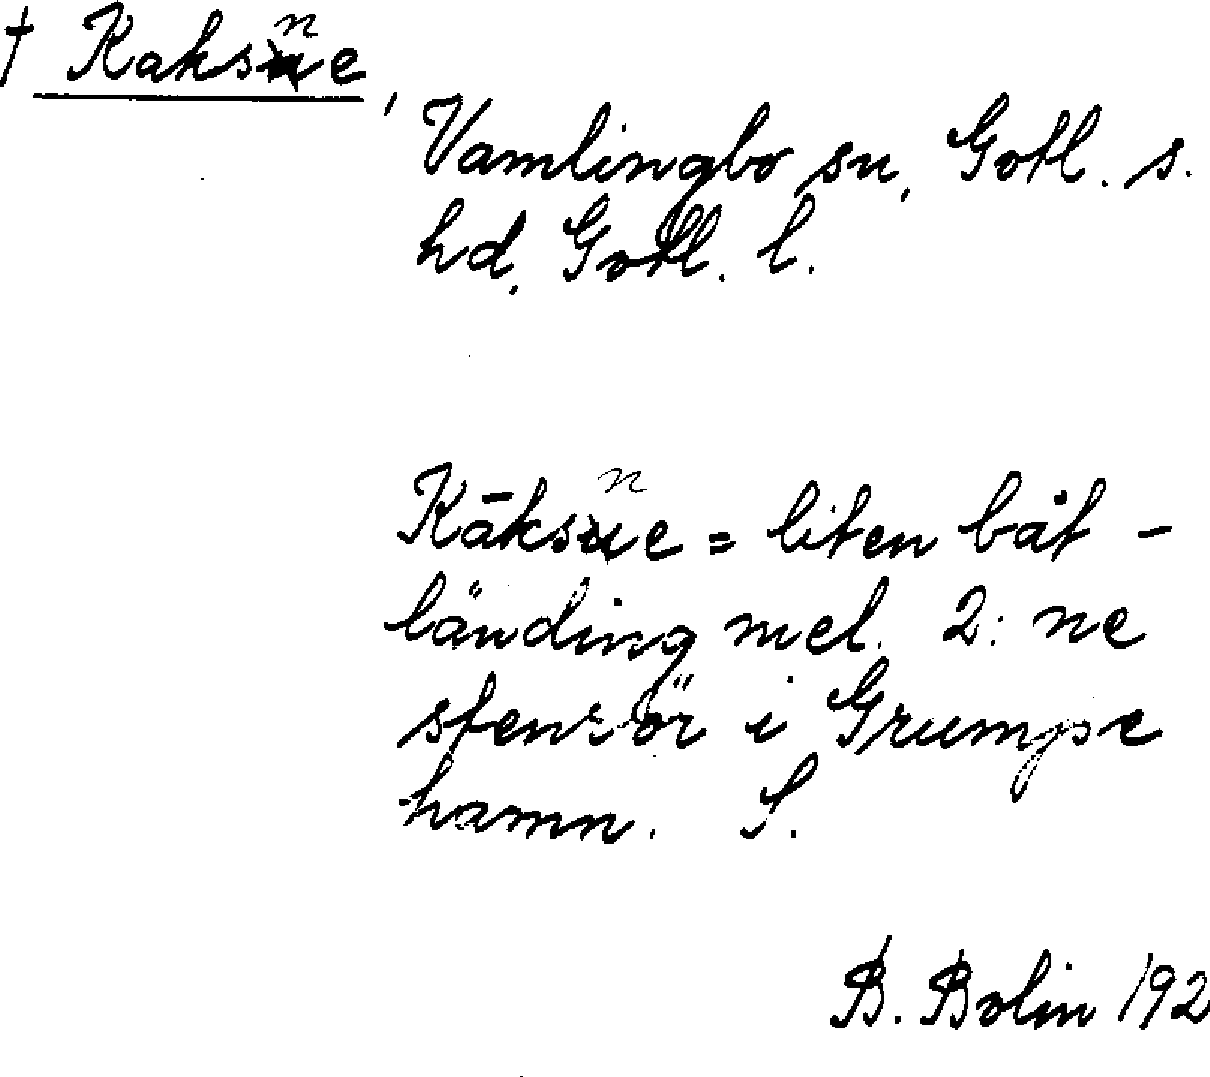 † Kaksne,
Vamlingbo sn, Gotl. s.
hd, Gotl. l.
Kāksne = liten båt-
länding mel. 2:ne
stenrör i Grumpe
hamn. S.
B. Bolin 192